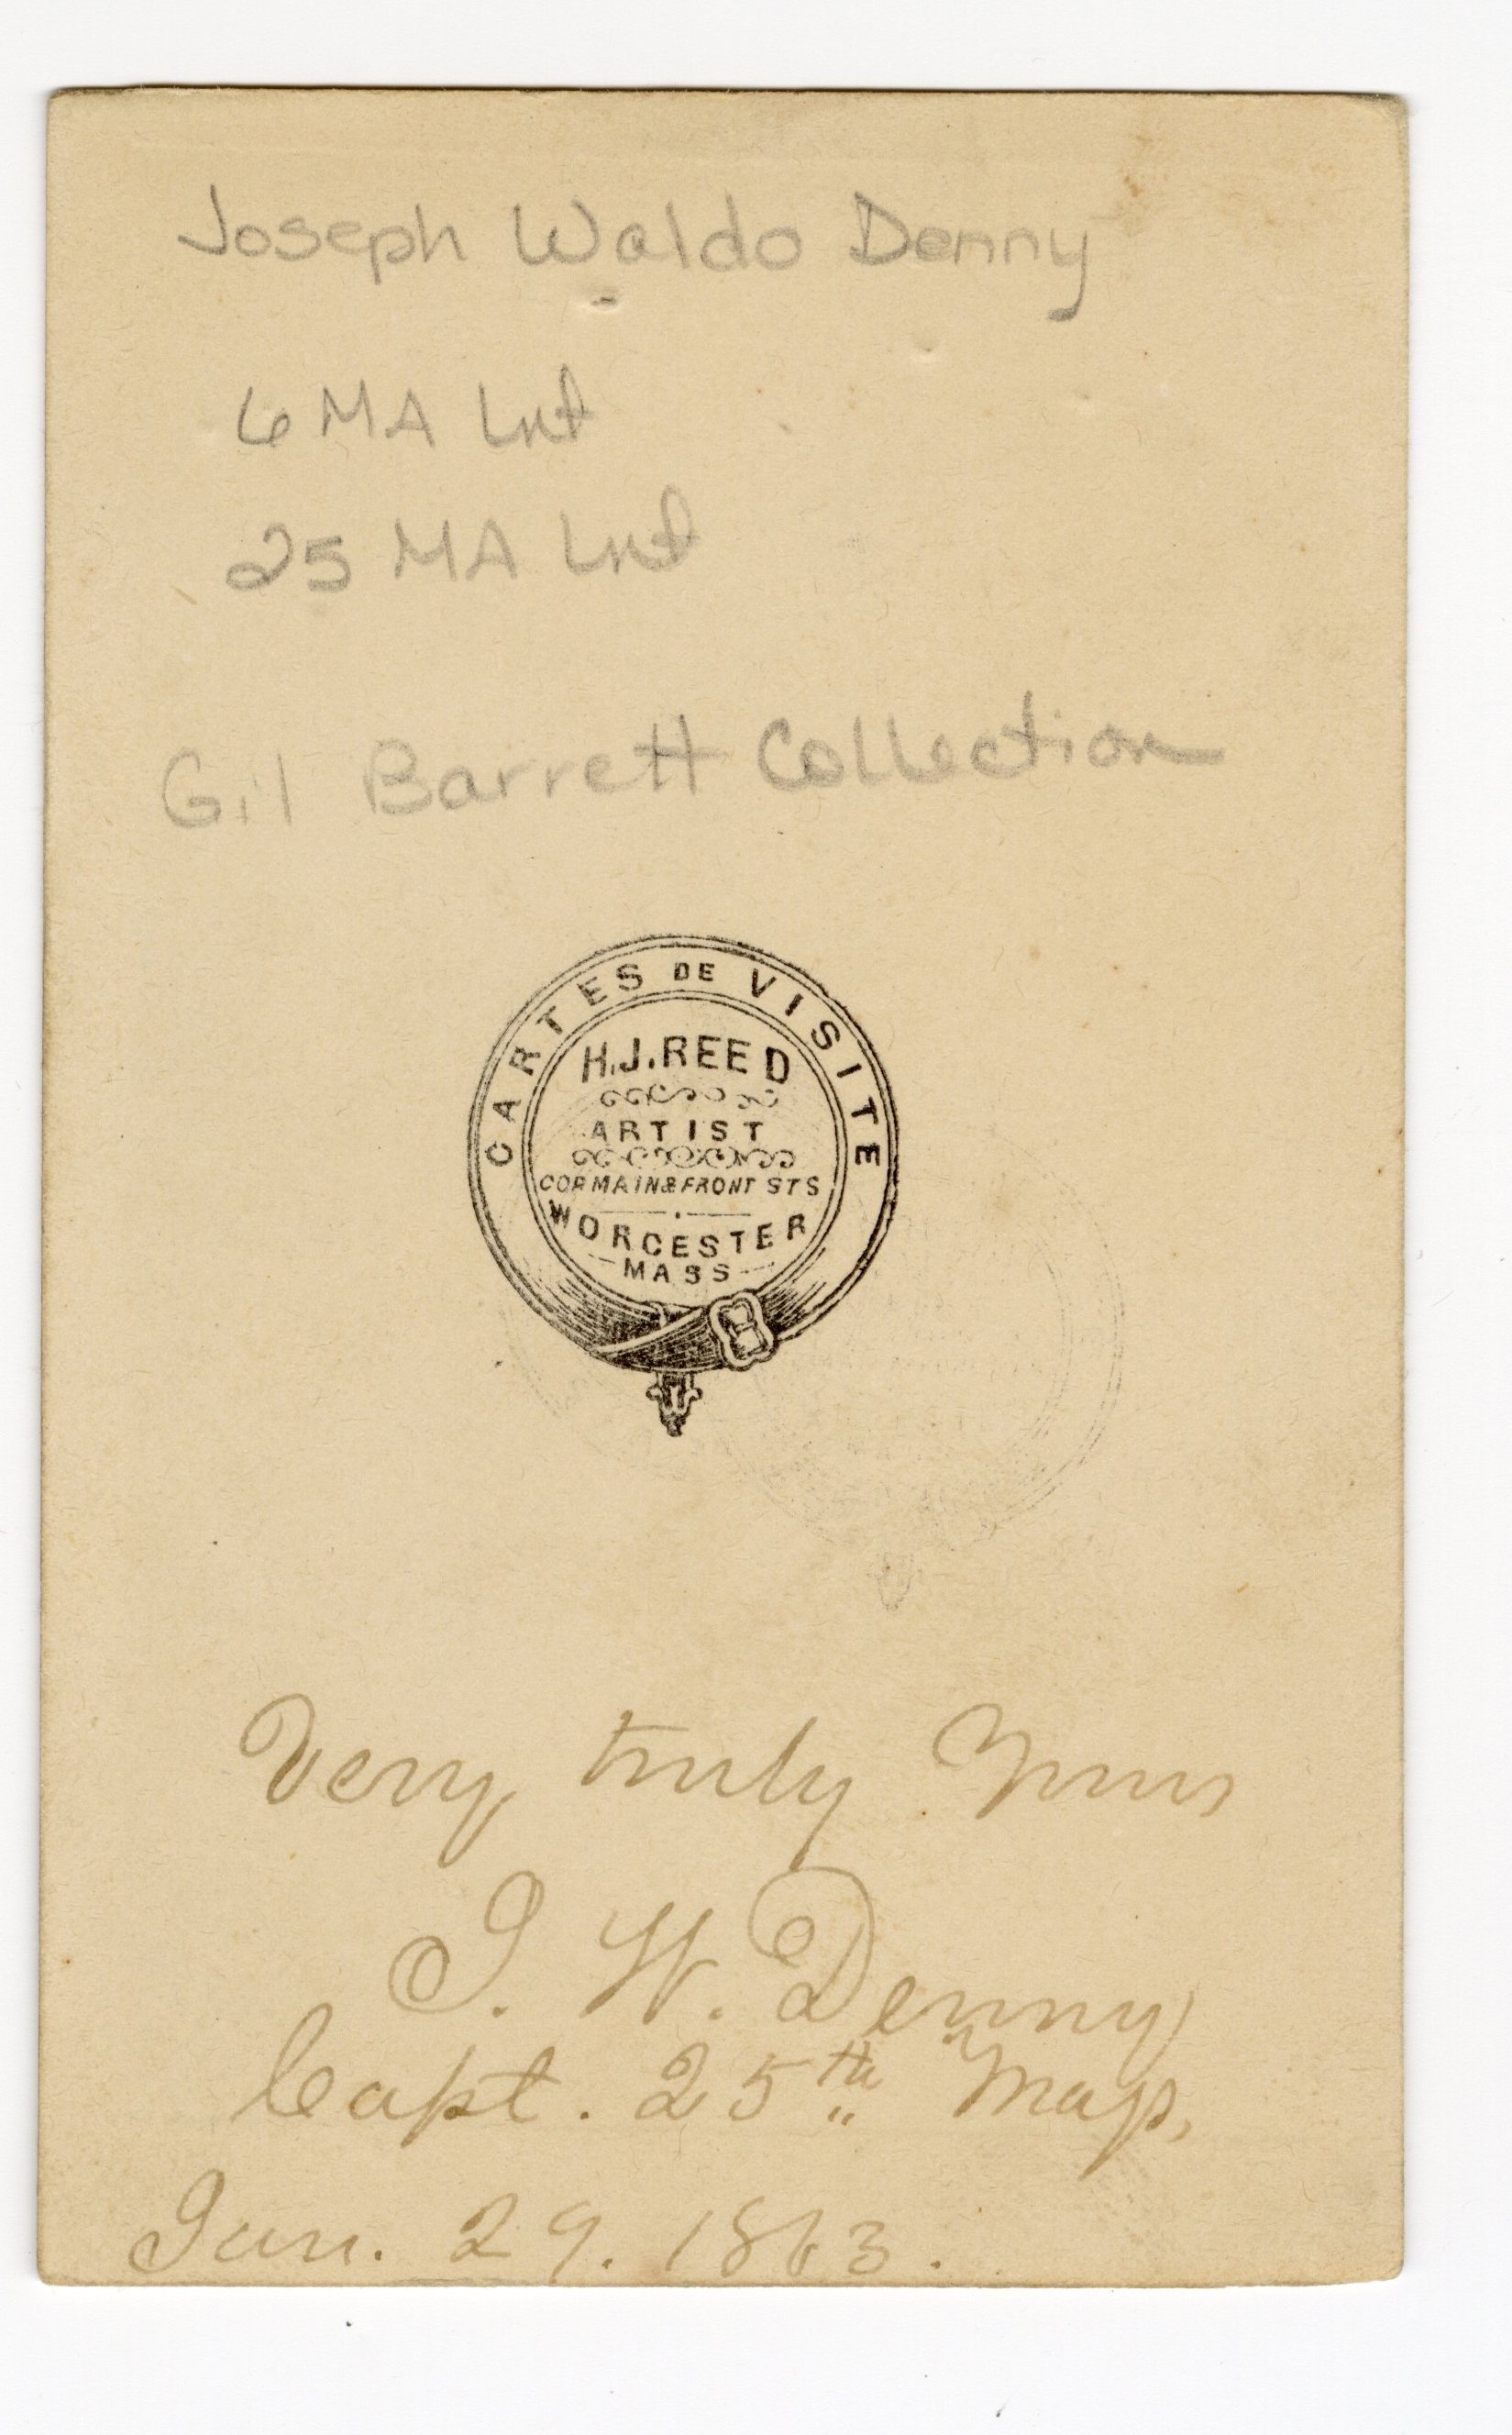 Joseph Waldo Denny
6 MA Inf
25 MA Inf
Gil Barrett Collection
CARTES DE VISITE
H.J.REED
ARTIST
COR MAIN & FRONT STS
WORCESTER
MASS
Very truly Yours
J. W. Denny
Capt. 25th Mass.
Jan. 29. 1863.